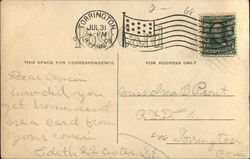 2- 68
TORRINGTON
JUL 31
PM
CONN.
THIS SPACE FOR CORRESPONDENCE.
FOR ADDRESS ONLY.
Dear Cousin
how did you
get home send
me a card from
your cousin
Edith
Miss Ina B Pront
R.F.D. #1
Torrington
Conn